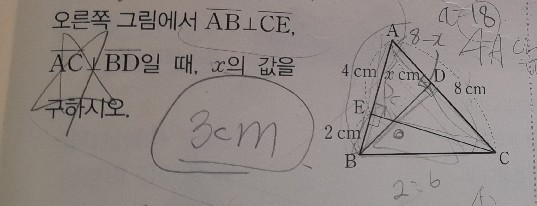 오른쪽 그림에서 AB⊥CE,
AC⊥BD일 때, x의 값을
구하시오.
3cm
A
4 cm
x cm
D
8 cm
E
2 cm
B
C
2=6